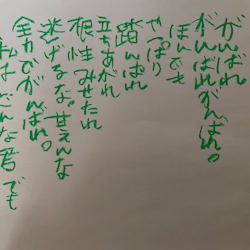 がんばれ
がんばれがんばれ。
ほんでも
やっぱり
踏んばれ
立ちあがれ
根性みせたれ
逃げるな。甘えんな
全力でがんばれ。
私はどんな君でも